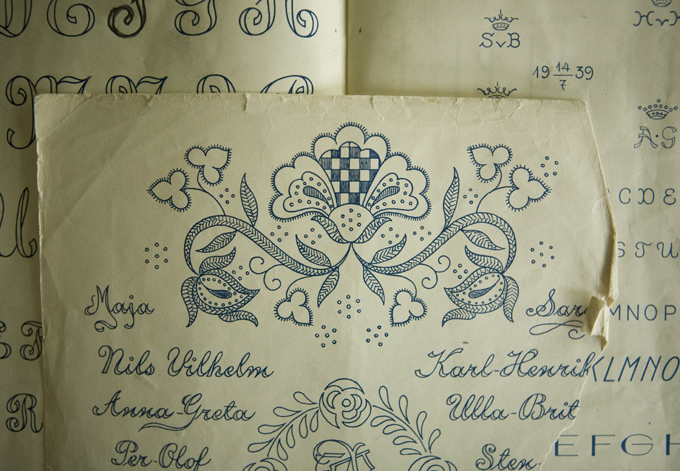 SvB
19 14/7 39
A·G
CDE
STU
Maja
Sar
MNOP
Nils Vilhelm
Karl-Henrik
KLMNO
Anna-Greta
Ulla-Brit
Per-Olof
Sten
EFGH